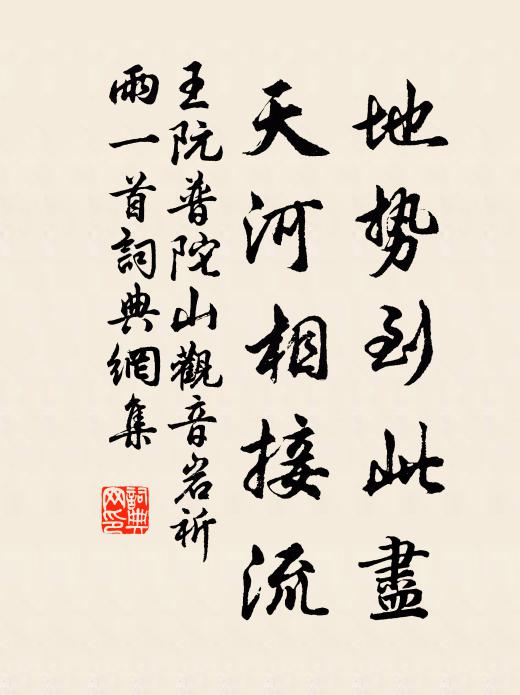 地势到此盡
天河相接流
王阮普陀山觀音岩祈
雨一首詞典網集
詞典
网印